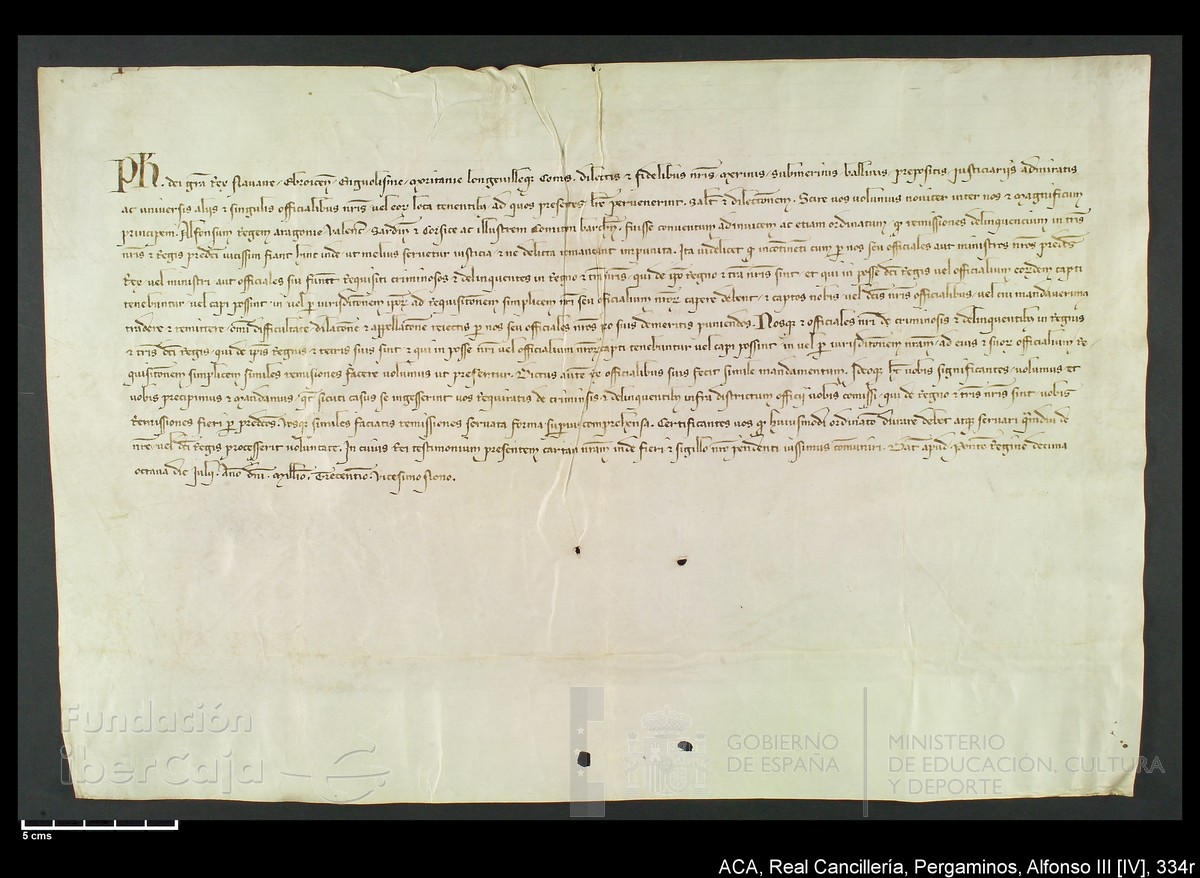 Ph. dei gra Rex Navarre. Ebroicen. Engolisme. Moritanie longeuilleq Comes. dilectis & fidelibus nris merinis. submerinis ballivis. prepositis. justiciariis admiratis
ac universis aliis & singulis officialibus nris vel eor loca tenentib ad quos presentes lre pervenerint. Salt & dilectionem. Scire vos volumus noviter inter nos & magnificum
principem. Alfonsum Regem aragonie Valenc. Sardin & Corsice ac illustrem Comitem barchn. fuisse conventum adinvicem ac etiam ordinatum. q remissiones delinquencium in tris
nris & regis predci vicissim fiant hinc inde ut melius servetur iusticia & ne delicta remaneant impunita. Ita videlicet q incontineti cum p nos seu officiales aut ministros nros predcs
Rex vel ministri aut officiales sui fuerit Requisiti criminosos & delinquentes in Regno & tris nris. qui de ipo Regno & tra nris sint. et qui in posse dci Regis vel officialium eordem capti
tenebantur. vel capi possint in vel p iurisditionem ipor. ad Requisitionem simplicem nri seu officialium nror capere debent. & captos nobis vel dcis nris officialibus. vel cui mandaverim
tradere & remittere. omi difficultate. dilatone. & appellatone reiectis p nos seu officiales nros pro suis demeritis puniendos. Nosque & officiales nri de criminosis & delinquentib in Regnis
& tris dci Regis. qui de ipis Regnis & terris suis sint & qui in posse nri vel officialium nror capti tenebantur vel capi possint in vel p iurisditionem nram. ad eius & suor officialium Re-
quisitionem simplicem similes remisiones facere volumus ut presertur. Dictus aute rex officialibus suis fecit simile mandamentum. Ideoque hec vobis significantes. volumus et
vobis precipimus & mandamus. qt sicuti casus se ingesserint vos requiratis de criminosis & delinquentib infra districtum officii vobis comissi. qui de Regno & tris nris sint vobis
Remissiones fieri p predcos. vosque similes faciatis remissiones servata forma supius comprehensa. Certificantes vos q huiusmodi ordinato durare debet atq servari qmdiu de
nra vel dci Regis processerit voluntate. In cuius Rei testimonium presentem cartam nram inde fieri & sigillo nro pendenti iussimus comuniri. Dat apud Ponte Regine decima
octava die Julii. Anno dni. Millio. Trecentio. vicesimo Nono.
Fundación
iberCaja
GOBIERNO
DE ESPAÑA
MINISTERIO
DE EDUCACIÓN, CULTURA
Y DEPORTE
5 cms
ACA, Real Cancillería, Pergaminos, Alfonso III [IV], 334r